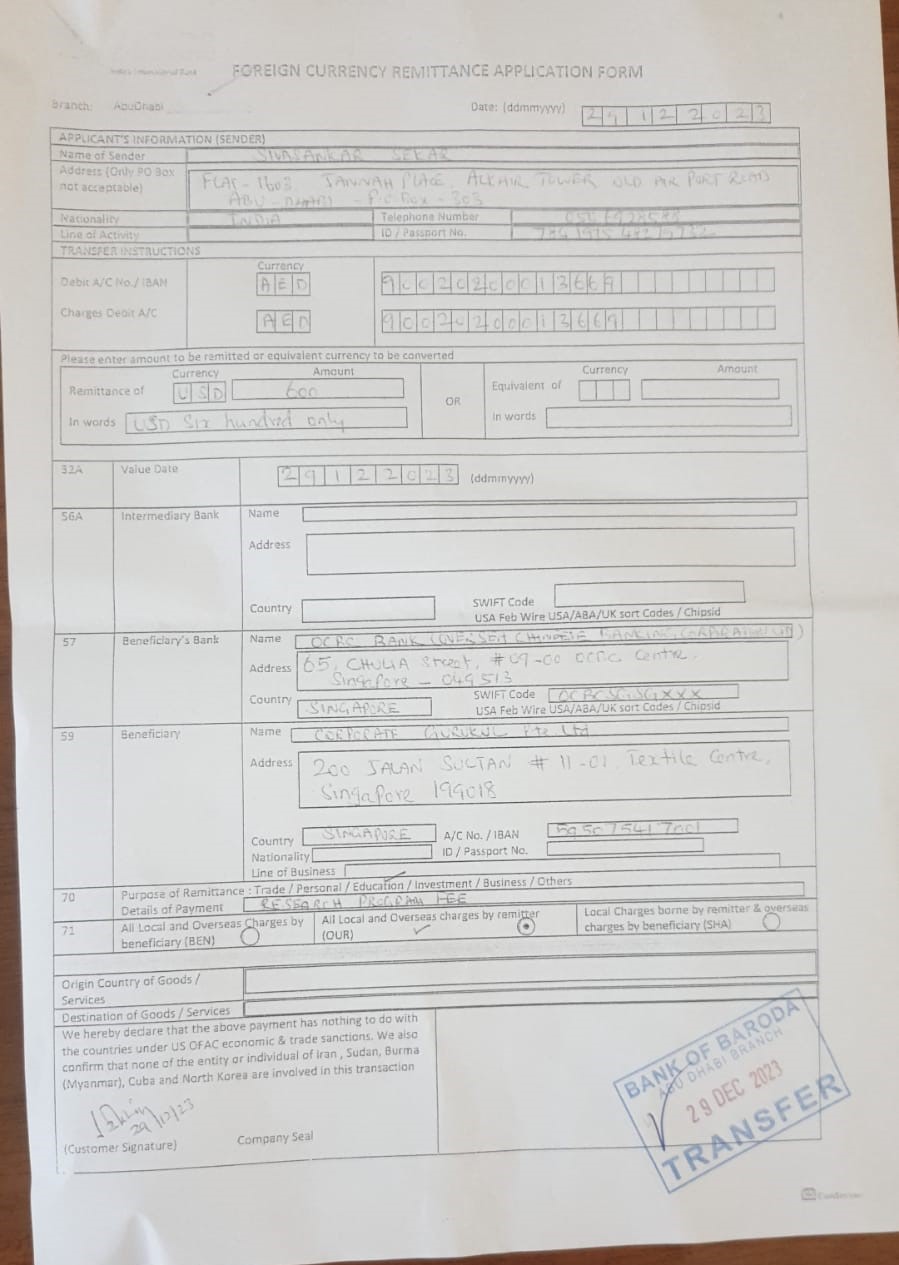 India's International Bank
FOREIGN CURRENCY REMITTANCE APPLICATION FORM
Branch: AbuDhabi
Date: (ddmmyyyy) 29122023
APPLICANT'S INFORMATION (SENDER)
Name of Sender SIVASANKAR SEKAR
Address (Only PO Box not acceptable) FLAT - 1603, JANNAH PLACE, TOWER OLD AIR PORT ROAD
ABU - DHABI - P.O Box - 303
Nationality INDIA Telephone Number
Line of Activity ID / Passport No.
TRANSFER INSTRUCTIONS
Currency
Debit A/C No./ IBAN AED 90020200013669
Charges Debit A/C AED 90020200013669
Please enter amount to be remitted or equivalent currency to be converted
Currency Amount Currency Amount
Remittance of USD 600 OR Equivalent of
In words USD Six hundred only In words
32A Value Date 29122023 (ddmmyyyy)
56A Intermediary Bank Name
Address
Country SWIFT Code
USA Feb Wire USA/ABA/UK sort Codes / Chipsid
57 Beneficiary's Bank Name OCBC BANK (OVERSEA CHINESE BANKING CORPORATION)
Address 65, CHULIA Street, #09-00 OCBC Centre,
Singapore - 049513
Country SINGAPORE SWIFT Code OCBCSGSGXXX
USA Feb Wire USA/ABA/UK sort Codes / Chipsid
59 Beneficiary Name CORPORATE GURUKUL Pte Ltd
Address 200 JALAN SULTAN # 11-01, Textile Centre,
Singapore 199018
Country SINGAPORE A/C No. / IBAN 595075417001
Nationality ID / Passport No.
Line of Business
70 Purpose of Remittance : Trade / Personal / Education / Investment / Business / Others
Details of Payment RESEARCH PROGRAM FEE
71 All Local and Overseas Charges by beneficiary (BEN) All Local and Overseas charges by remitter (OUR) Local Charges borne by remitter & overseas charges by beneficiary (SHA)
Origin Country of Goods / Services
Destination of Goods / Services
We hereby declare that the above payment has nothing to do with
the countries under US OFAC economic & trade sanctions. We also
confirm that none of the entity or individual of Iran , Sudan, Burma
(Myanmar), Cuba and North Korea are involved in this transaction
29/12/23
(Customer Signature) Company Seal
BANK OF BARODA
ABU DHABI BRANCH
29 DEC 2023
TRANSFER
CamScanner